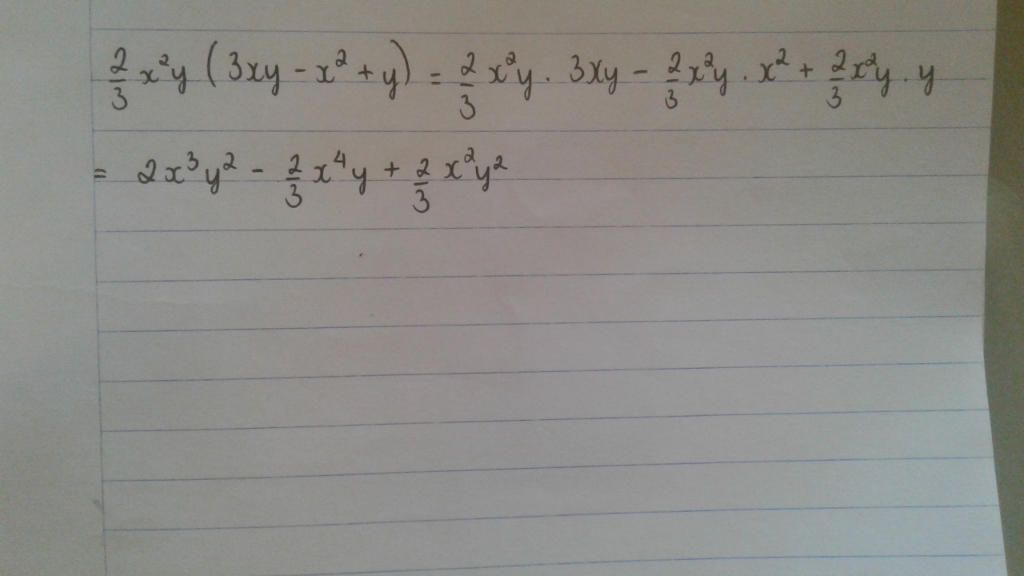 2/3 x²y (3xy - x² + y) = 2/3 x²y . 3xy - 2/3 x²y . x² + 2/3 x²y . y
= 2x³y² - 2/3 x⁴y + 2/3 x²y²